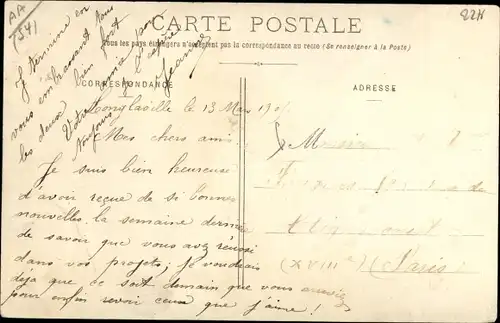 AA
(54)
CARTE POSTALE
Tous les pays étrangers n'acceptent pas la correspondance au recto (Se renseigner à la Poste)
CORRESPONDANCE
ADRESSE
Je termine en
vous embrassant tous
les deux bien fort
Votre amie pour
toujours
Jeanne
Longlaville, 13 Mars 190
Mes chers amis,
Je suis bien heureuse
d'avoir reçue de si bonnes
nouvelles la semaine dernière
de savoir que vous avez réussi
dans vos projets; je voudrais
déja que ce soit demain que vous
pour enfin revoir ceux que j'aime!
(XVIII e) (Paris)